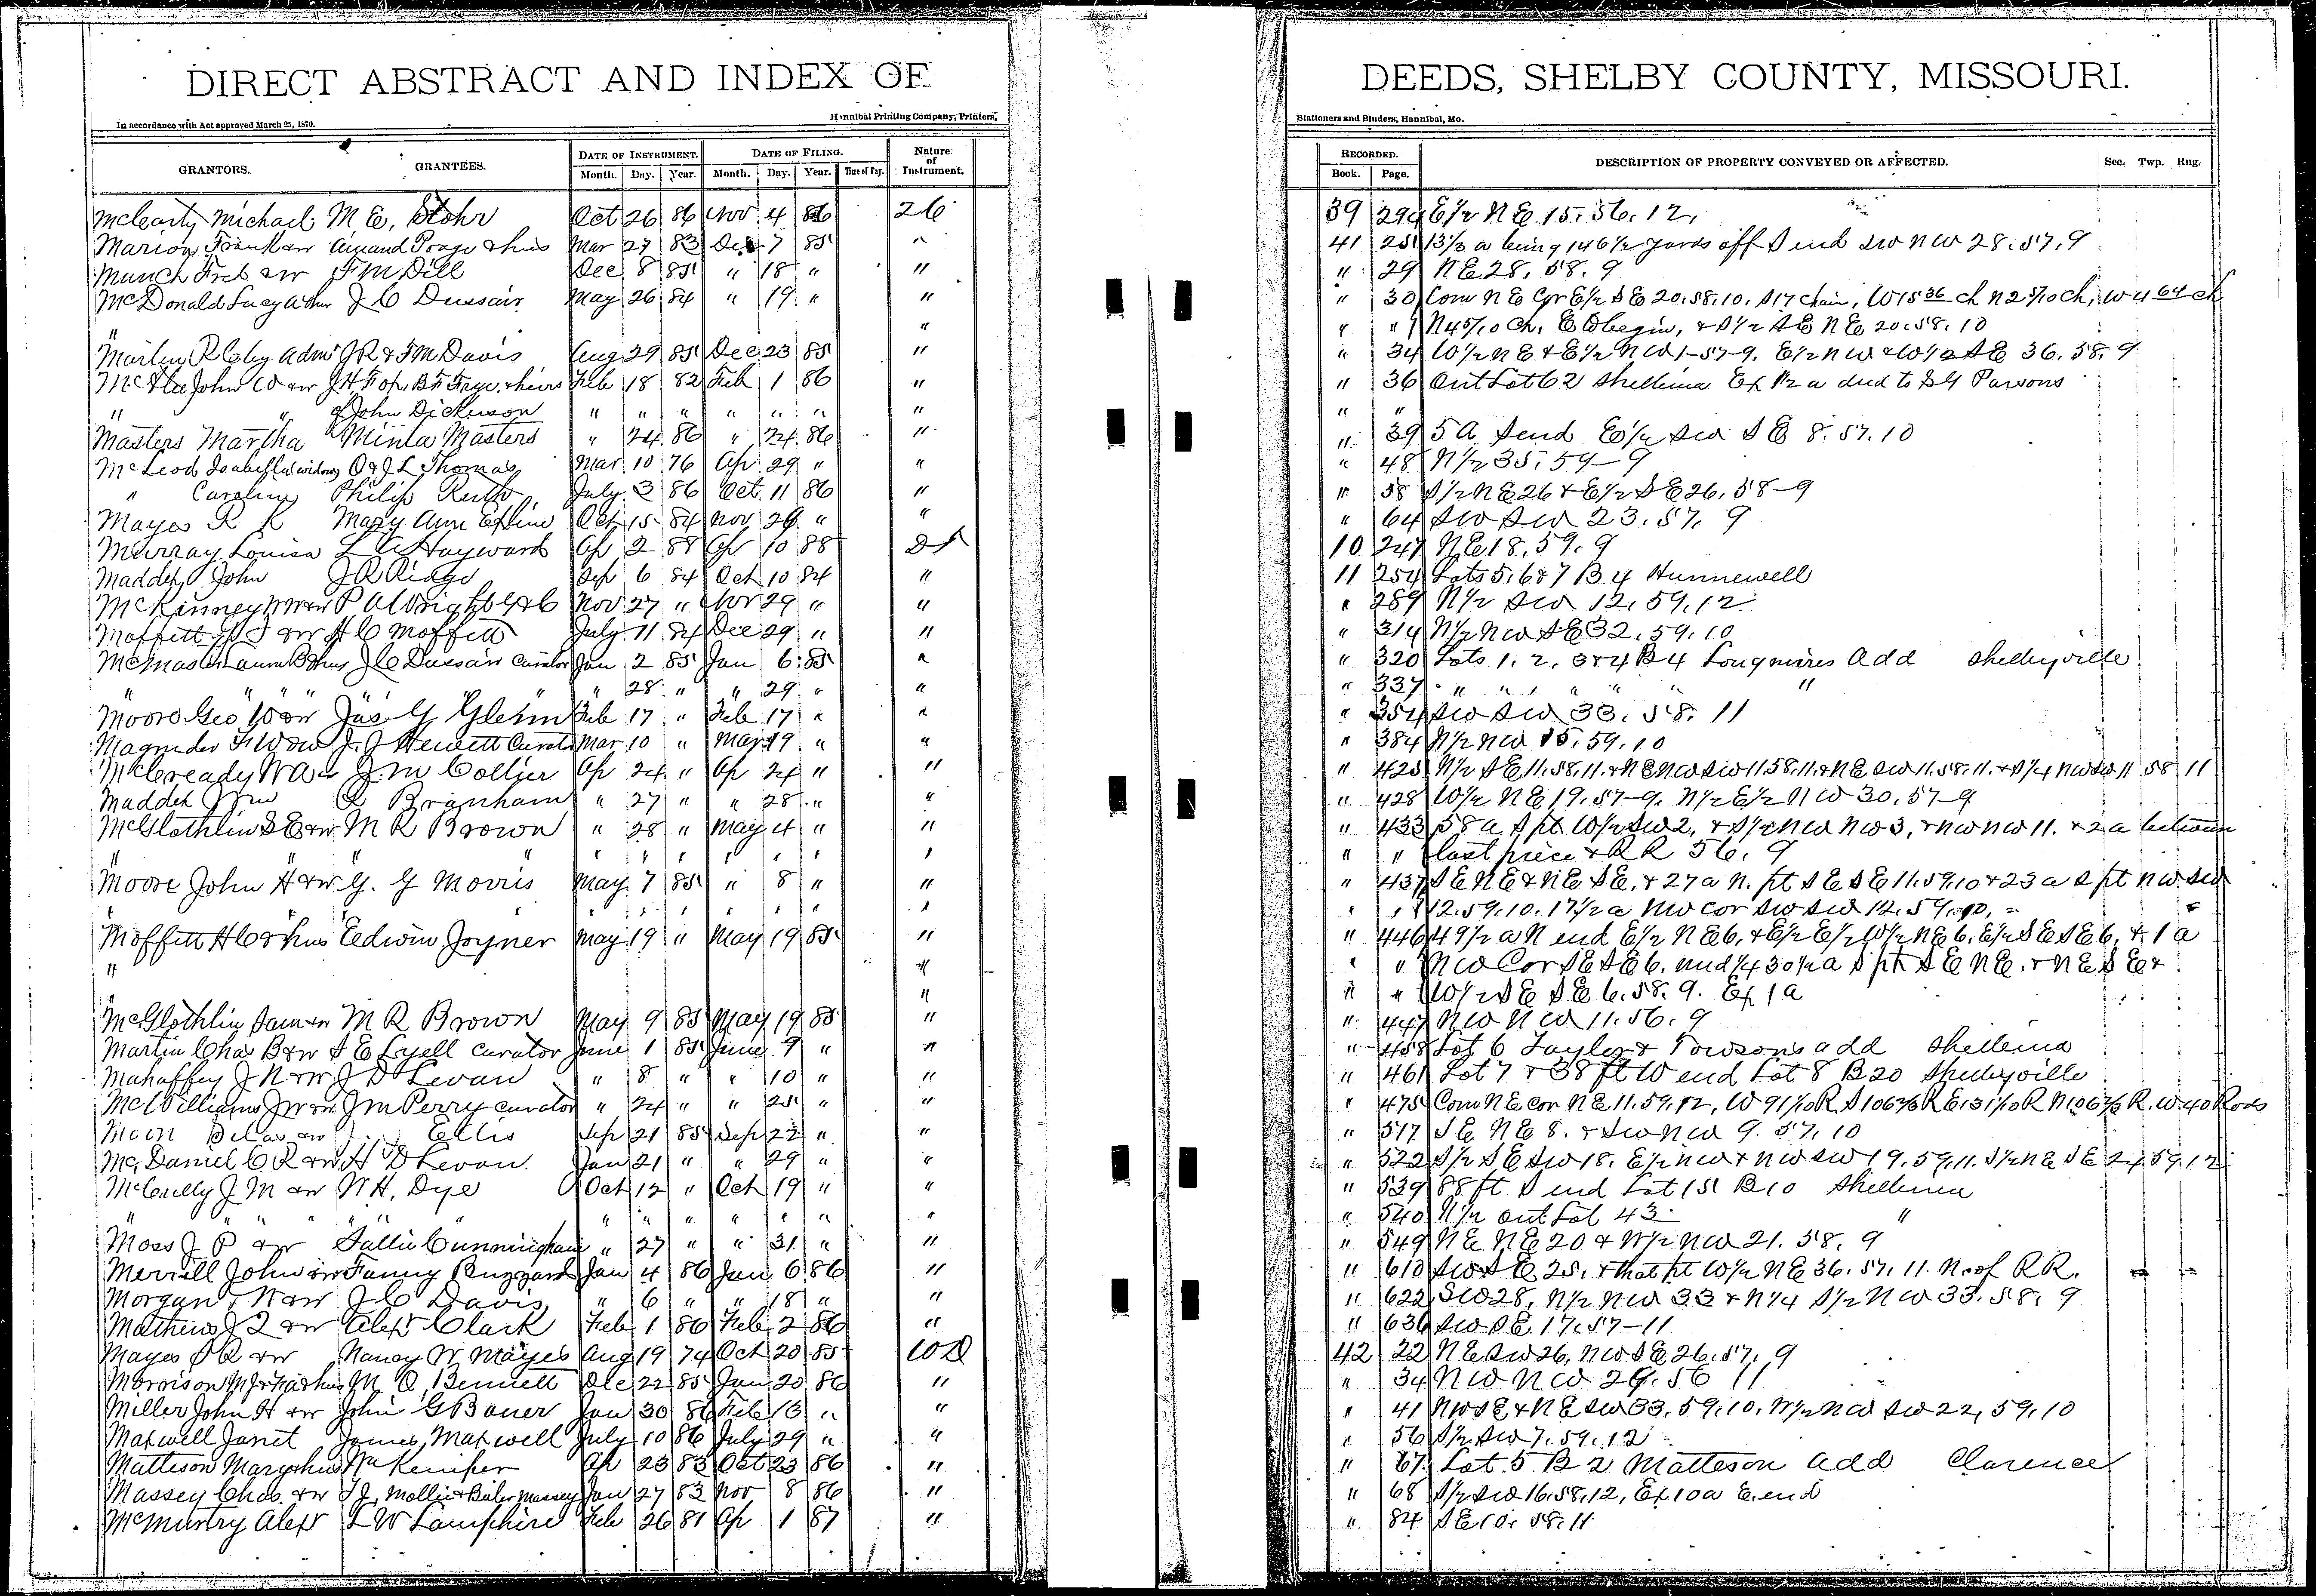 DIRECT ABSTRACT AND INDEX OF DEEDS, SHELBY COUNTY, MISSOURI.
In accordance with Act approved March 25, 1870. Hannibal Printing Company, Printers, Stationers and Binders, Hannibal, Mo.
GRANTORS. GRANTEES. DATE OF INSTRUMENT. Month. Day. Year. DATE OF FILING. Month. Day. Year. Time of Day. Nature of Instrument. RECORDED. Book. Page. DESCRIPTION OF PROPERTY CONVEYED OR AFFECTED. Sec. Twp. Rng.
McCarty Michael M E, Stohr Oct 26 86 Nov 4 86 26 39 294 E 1/2 N E 15. 56. 12,
Marion Frank & w Mar 27 83 Dec 7 85 " 41 25 13 1/3 a being 146 1/2 yards off S end SW NW 28. 57, 9
Munch Fred & w F M Dill Dec 8 85 " 18 " " " 29 NE 28. 58. 9
McDonald Lucy A & hus J C Dussair May 26 84 " 19 " " " 30 Com N E Cor E 1/2 S E 20. 58. 10, S 17 chain, W 15 36 ch N 2 5/10 ch, W 4 64 ch
" " " " N 45/10 ch, E to begin, & S 1/2 S E N E 20. 58. 10
J R & F M Davis Aug 29 85 Dec 23 85 " " 34 W 1/2 N E & E 1/2 N W 1-57-9. E 1/2 N W & W 1/2 S E 36. 58. 9
John W & w J H Fox, B F Frye, & heirs Feb 18 82 Feb 1 86 " " 36 Out Lot 62 Shelbina Ex 1/2 a deed to S G Parsons
" " of John Dickerson " " " " " " " " "
Masters Martha Minta Masters " 24 86 " 24 86 " " 39 5 A S end E 1/2 SW S E 8. 57. 10
McLeod Isabella widow O & J L Thomas Mar 10 76 Ap 29 " " " 48 N 1/2 35. 59-9
" Caroline Philip Ruth July 3 86 Oct 11 86 " " 58 S 1/2 N E 26 & E 1/2 S E 26. 58-9
Mayes R K Mary Ann Exline Oct 15 84 Nov 26 " " " 64 SW SW 23. 57. 9
Murray Louisa L A Hayward Ap 2 88 Ap 10 88 10 247 N E 18. 59. 9
Maddex John J R Ridge Sep 6 84 Oct 10 84 " 11 254 Lots 5. 6 & 7 B 4 Hunnewell
McKinney & w P A Wright Nov 27 " Nov 29 " " " 289 N 1/2 SW 12, 59, 12
Moffett & w H C Moffett July 11 84 Dec 29 " " " 314 N 1/2 NW S E 32. 59. 10
McMaster Laura B & hus J C Dussair Curator Jan 2 85 Jan 6 85 " " 320 Lots 1, 2, 3 & 4 B 4 Longmires Add Shelbyville
" " " " " " " 28 " " 29 " " " 337 " " " " " "
Moore Geo W & w Jas G Glenn Feb 17 " Feb 17 " " " 354 SW SW 33. 58. 11
Magruder F W & w J. J Hewett Curator Mar 10 " Mar 19 " " " 384 N 1/2 NW 15. 59. 10
McCready W A & J. M Collier Ap 24 " Ap 24 " " " 425 N 1/2 S E 11. 58. 11. & N E NW SW 11. 58. 11. & N E SW 11. 58. 11. & S 1/4 NW SW 11 58 11
Maddex Branham " 27 " " 28 " " " 428 W 1/2 N E 19. 57-9. N 1/2 E 1/2 N W 30. 57-9
McGlothlin S E & w M R Brown " 28 " May 4 " " " 433 58 a S pt W 1/2 SW 2, & S 1/2 NW NW 3, & NW NW 11. & 2 a between
" " " " " " " " " " " last piece & R R 56. 9
Moore John H & w G. G Morris May 7 85 " 8 " " " 437 S E N E & N E S E, & 27 a N. pt S E S E 11. 59. 10 & 23 a S pt NW SW
" " " " " " " " " 12. 59. 10. 17 1/2 a NW cor SW SW 12. 59. 10.
Moffett H C & hus Edwin Joyner May 19 " May 19 85 " " 446 49 1/2 a N end E 1/2 N E 6, & E 1/2 E 1/2 W 1/2 N E 6. E 1/2 S E S E 6, & 1 a
" " " " NW Cor S E S E 6. und 1/4 30 1/2 a S pt S E N E. & N E S E &
" " " " W 1/2 S E S E 6. 58. 9. Ex 1 a
McGlothlin Sam & w M R Brown May 9 85 May 19 85 " " 447 NW NW 11. 56. 9
Martin Chas B & w S E Lyell Curator June 1 85 June 9 " " " 458 Lot 6 Taylor & Towsons add Shelbina
Mahaffey J N & w J D Levan " 8 " " 10 " " " 461 Lot 7 & 38 ft W end Lot 8 B 20 Shelbyville
McWilliams J W & w J M Perry curator " 24 " " 25 " " " 475 Com N E cor N E 11. 59. 12, W 91 1/10 R S 106 2/3 R E 131 1/10 R N 106 2/3 R. W. 40 Rods
Ellis Sep 21 85 Sep 22 " " " 517 S E N E 8. & SW NW 9. 57. 10
McDaniel C R & w H D Levan Jan 21 " " 29 " " " 522 S 1/2 S E SW 18. E 1/2 NW & NW SW 19. 59. 11. S 1/2 N E S E 24. 59. 12
McCully J M & w N H. Dye Oct 12 " Oct 19 " " " 539 88 ft S end Lot 15 B 10 Shelbina
" " " " " " " " " " " " 540 N 1/2 out Lot 43 "
Moss J P & w Sallie Cunningham " 27 " " 31 " " " 549 N E N E 20 & W 1/2 NW 21. 58. 9
Merrill John & w Fanny Buzzard Jan 4 86 Jan 6 86 " " 610 SW S E 25. & that pt W 1/2 N E 36. 57. 11. N. of R R.
Morgan W & w J C Davis " 6 " " 18 " " " 622 SW 28, N 1/2 NW 33 & N 1/4 S 1/2 NW 33. 58. 9
Mathews J Q & w Alexr Clark Feb 1 86 Feb 2 86 " " 636 SW S E 17. 57-11
Mayes & w Nancy W Mayes Aug 19 74 Oct 20 85 WD 42 22 N E SW 26, NW S E 26. 57, 9
Morrison M. O, Bennett Dec 22 85 Jan 20 86 " " 34 NW NW 29. 56 11
Miller John H & w John G Bauer Jan 30 86 Feb 13 " " " 41 NW S E & N E SW 33, 59, 10, W 1/2 NW SW 22, 59, 10
Maxwell Janet James Maxwell July 10 86 July 29 " " " 56 S 1/2 SW 7. 59. 12
Matteson Mary & hus Wm Kemper Ap 23 83 Oct 23 86 " " 67 Lot 5 B 2 Matteson Add Clarence
Massey Chas. & w T J, Mollie & Massey Jan 27 83 Nov 8 86 " " 68 S 1/2 SW 16. 58. 12, Ex 10 a E. end
McMurtry Alexr L W Lamphire Feb 26 81 Ap 1 87 " " 84 S E 10. 58. 11